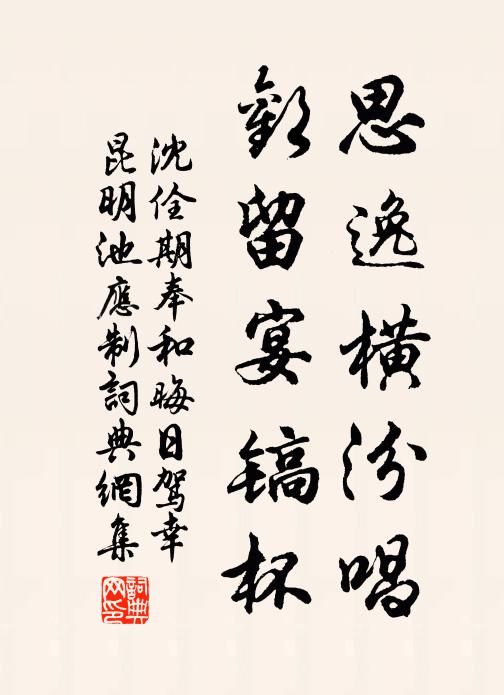 思逸横汾唱
歡留宴镐杯
沈佺期奉和晦日駕幸
昆明池應制詞典網集
詞典
网印